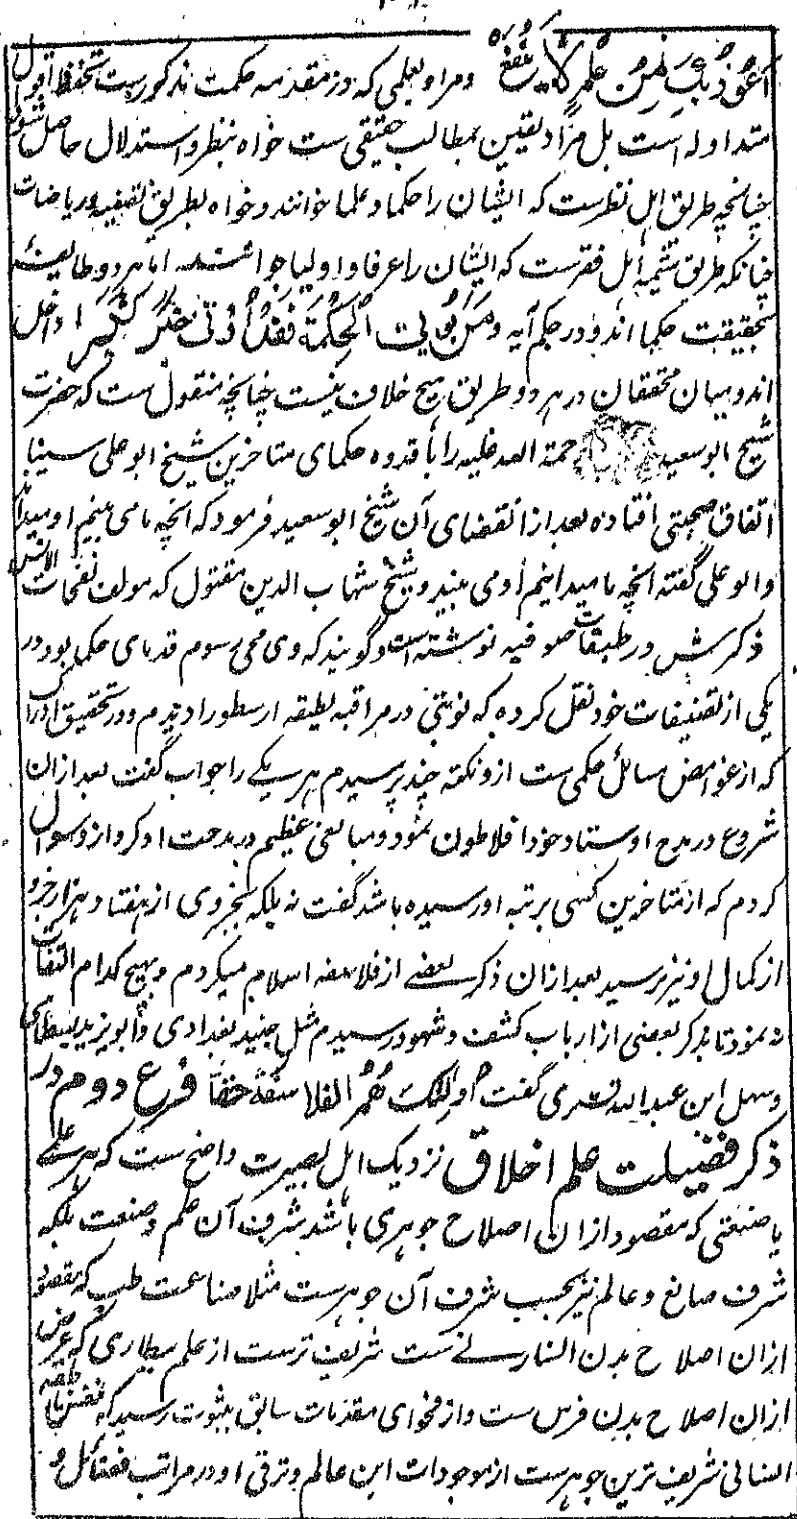 اَعُوذُ بِكَ مِنْ عِلْمٍ لَا يَنْفَعُ ومراد بعلمی که در مقدمه حکمت مذکورست تحفظ اقوال
متداوله است بل مراد یقین بمطالب حقیقی ست خواه بنظر و استدلال حاصل شود
چنانچه طریق اہل نظرست که ایشان را حکما و علما خوانند و خواه بطریق تصفیه و ریاضات
چنانکه طریق شیمه اہل فقرست که ایشان را عرفا و اولیا خوانند اما ہر دو طایفه
بحقیقت حکما اند و در حکم آیه وَمَنْ يُؤْتَ الْحِكْمَةَ فَقَدْ أُوتِيَ خَيْرًا كَثِيرًا داخل
اند و میان محققان در ہر دو طریق ہیچ خلاف نیست چنانچه منقول ست که حضرت
شیخ ابو سعید رحمة الله علیه را با قدوه حکمای متاخرین شیخ ابو علی سینا
اتفاق صحبتی افتاده بعد از انقضای آن شیخ ابو سعید فرمود که انچه ما می بینم او میداند
و ابو علی گفته انچه ما میدانیم او می بیند و شیخ شهاب الدین مقتول که مولف نفحات الانس
ذکرش در طبقات صوفیه نوشته است و گویند که وی محی رسوم قدمای حکما بود در
یکی از تصنیفات خود نقل کرده که نوبتی در مراقبه لطیفه ارسطو را دیدم و در تحقیق ادراک
که از غوامض مسائل حکمی ست ازو نکته چند پرسیدم ہر یکے را جواب گفت بعد ازان
شروع در مدح اوستاد خود افلاطون نمود و مبالغی عظیم در مدحت او کرد ازو سوال
کردم که از متاخرین کسی برتبه او رسیده باشد گفت نه بلکه بجزوی از ہفتاد ہزار جزو
از کمال او نیز نرسید بعد ازان ذکر بعضے از فلاسفه اسلام میکردم و بہیچ کدام التفات
نه نمود تا بذکر بعضی از ارباب کشف و شهود رسیدم مثل جنید بغدادی و ابو یزید بسطامی
و سہل ابن عبد الله تستری گفت اُولٰئِكَ هُمُ الْفَلَاسِفَةُ حَقًّا فرع دوم در
ذکر فضیلت علم اخلاق نزدیک اہل بصیرت واضح ست که ہر علمے
یا صنعتی که مقصود ازان اصلاح جوہری باشد شرف آن علم و صنعت بلکه
شرف صانع و عالم نیز بحسب شرف آن جوہرست مثلا صناعت طب که مقصود
ازان اصلاح بدن انسانے ست شریف ترست از علم بیطاری که غرض
ازان اصلاح بدن فرس ست و از فحوای مقدمات سابق بثبوت رسید که نفس ناطقه
انسانی شریف ترین جوہرست از موجودات این عالم و ترقی او در مراتب فضائل و